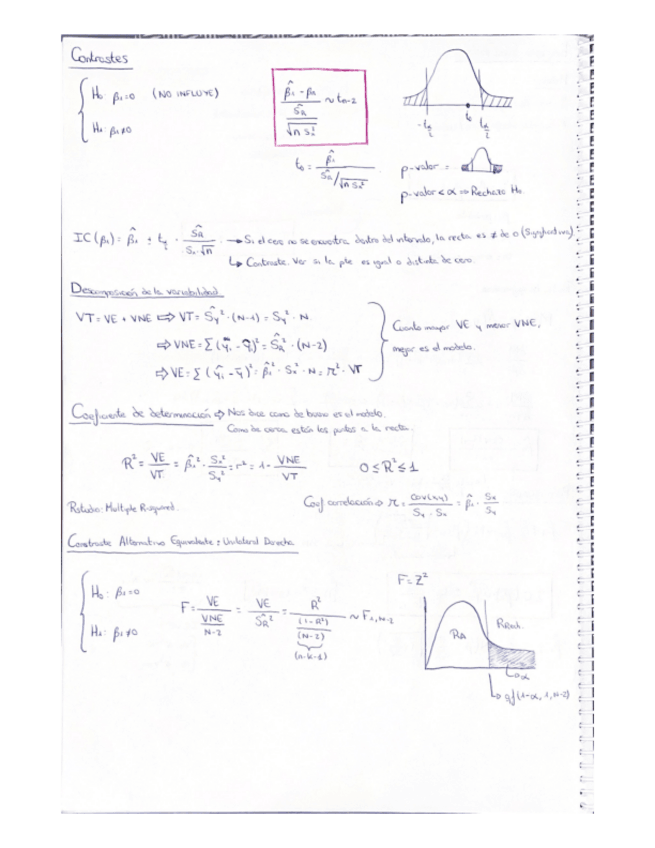 Contrastes
H₀: β₁=0 (NO INFLUYE)
H₁: β₁≠0
(β̂₁ - β₁) / (ŜR / √(n Sx²)) ~ t n-2
-tα/2 t₀ tα/2
t₀ = β̂₁ / (ŜR / √(n Sx²))
p-valor =
p-valor < α ⇒ Rechazo H₀
IC(β₁) = β̂₁ ± t · ŜR / (Sx √n) → Si el cero no se encuentra dentro del intervalo, la recta es ≠ de 0 (Significativa)
↳ Contraste. Ver si la pte es igual o distinta de cero.
Descomposición de la variabilidad
VT = VE + VNE ⇒ VT = Ŝy² · (N-1) = Sy² · N
⇒ VNE = Σ (yᵢ - ŷᵢ)² = ŜR² · (N-2)
⇒ VE = Σ (ŷᵢ - ȳ)² = β̂₁² · Sx² · N = r² · VT
Cuanto mayor VE y menor VNE,
mejor es el modelo.
Coeficiente de determinación ⇒ Nos dice como de bueno es el modelo.
Como de cerca están los puntos a la recta.
R² = VE / VT = β̂₁² · Sx² / Sy² = r² = 1 - VNE / VT 0 ≤ R² ≤ 1
Rstudio: Multiple R-squared.
Coef correlación ⇒ r = cov(x,y) / (Sy · Sx) = β̂₁ · Sx / Sy
Contraste Alternativo Equivalente: Unilateral Derecha
H₀: β₁=0
H₁: β₁≠0
F = VE / (VNE / N-2) = VE / ŜR² = R² / ((1-R²) / (N-2)) ~ F 1, N-2
(n-k-1)
F = Z²
RA
Rech.
α
qf(1-α, 1, N-2)